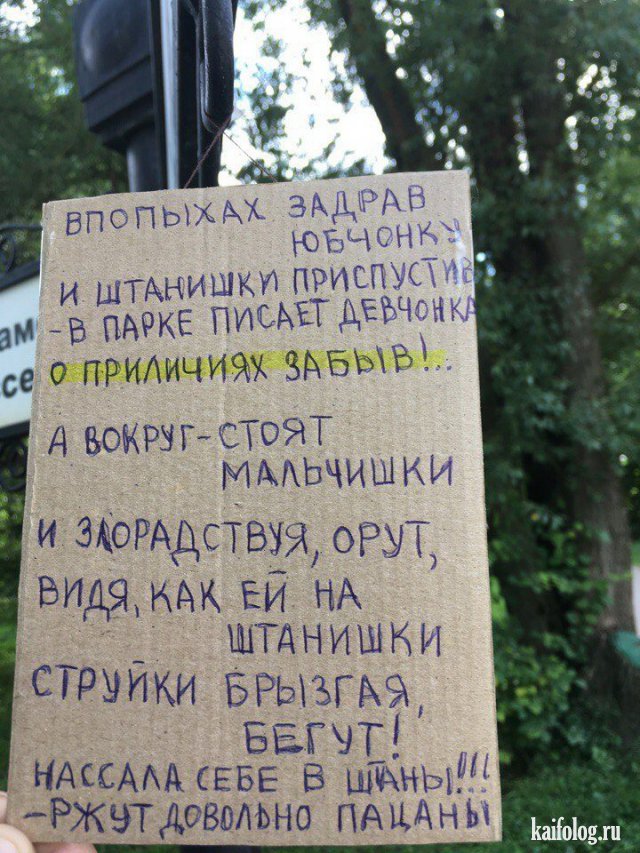 ВПОПЫХАХ ЗАДРАВ
ЮБЧОНКУ
И ШТАНИШКИ ПРИСПУСТИВ
-В ПАРКЕ ПИСАЕТ ДЕВЧОНКА
О ПРИЛИЧИЯХ ЗАБЫВ!..
А ВОКРУГ-СТОЯТ
МАЛЬЧИШКИ
И ЗЛОРАДСТВУЯ, ОРУТ,
ВИДЯ, КАК ЕЙ НА
ШТАНИШКИ
СТРУЙКИ БРЫЗГАЯ,
БЕГУТ!
НАССАЛА СЕБЕ В ШТАНЫ!!!
-РЖУТ ДОВОЛЬНО ПАЦАНЫ
kaifolog.ru